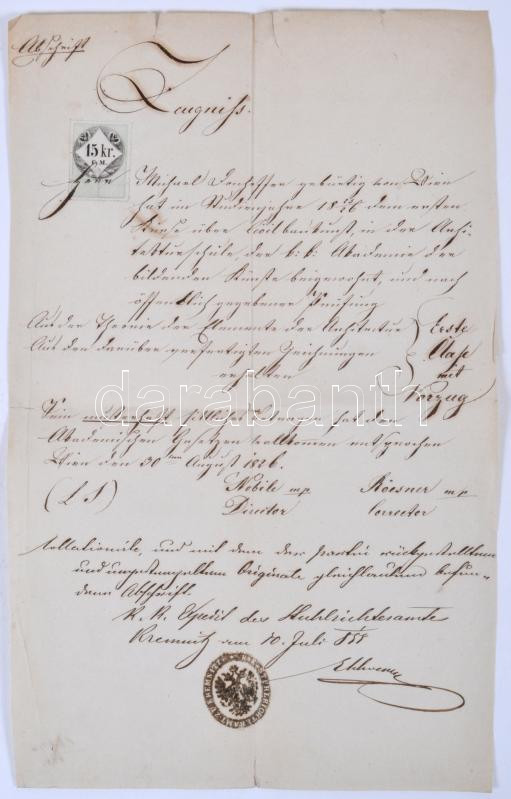 Abschrift
Zeugniss.
15 kr.
C.M.
Herr
Michael gebürtig von Wien
hat im Studienjahre 18 25/26 dem ersten
Kurse über Civilbaukunst, in der Archi-
tekturschule der k: k: Akademie der
bildenden Künste beigewohnt, und nach
öffentlich gegebener Prüfung
Aus der Theorie der Elemente der Architectur
Aus den darüber verfertigten Zeichnungen
erhalten
Erste
Claße
mit
Vorzug
Sein musterhaft sittliches Betragen hat den
Akademischen Gesetzen vollkommen entsprochen
Wien den 30ten August 1826.
(L S)
Nobile mp
Director
Roesner mp
Corrector
darabanth
Collationirt, und mit dem der Partei rückgestellten
und ungestempelten Originale gleichlautend befun-
dene Abschrift.
K. K. Expedit des Stuhlrichteramts
Kremnitz am 10. Juli